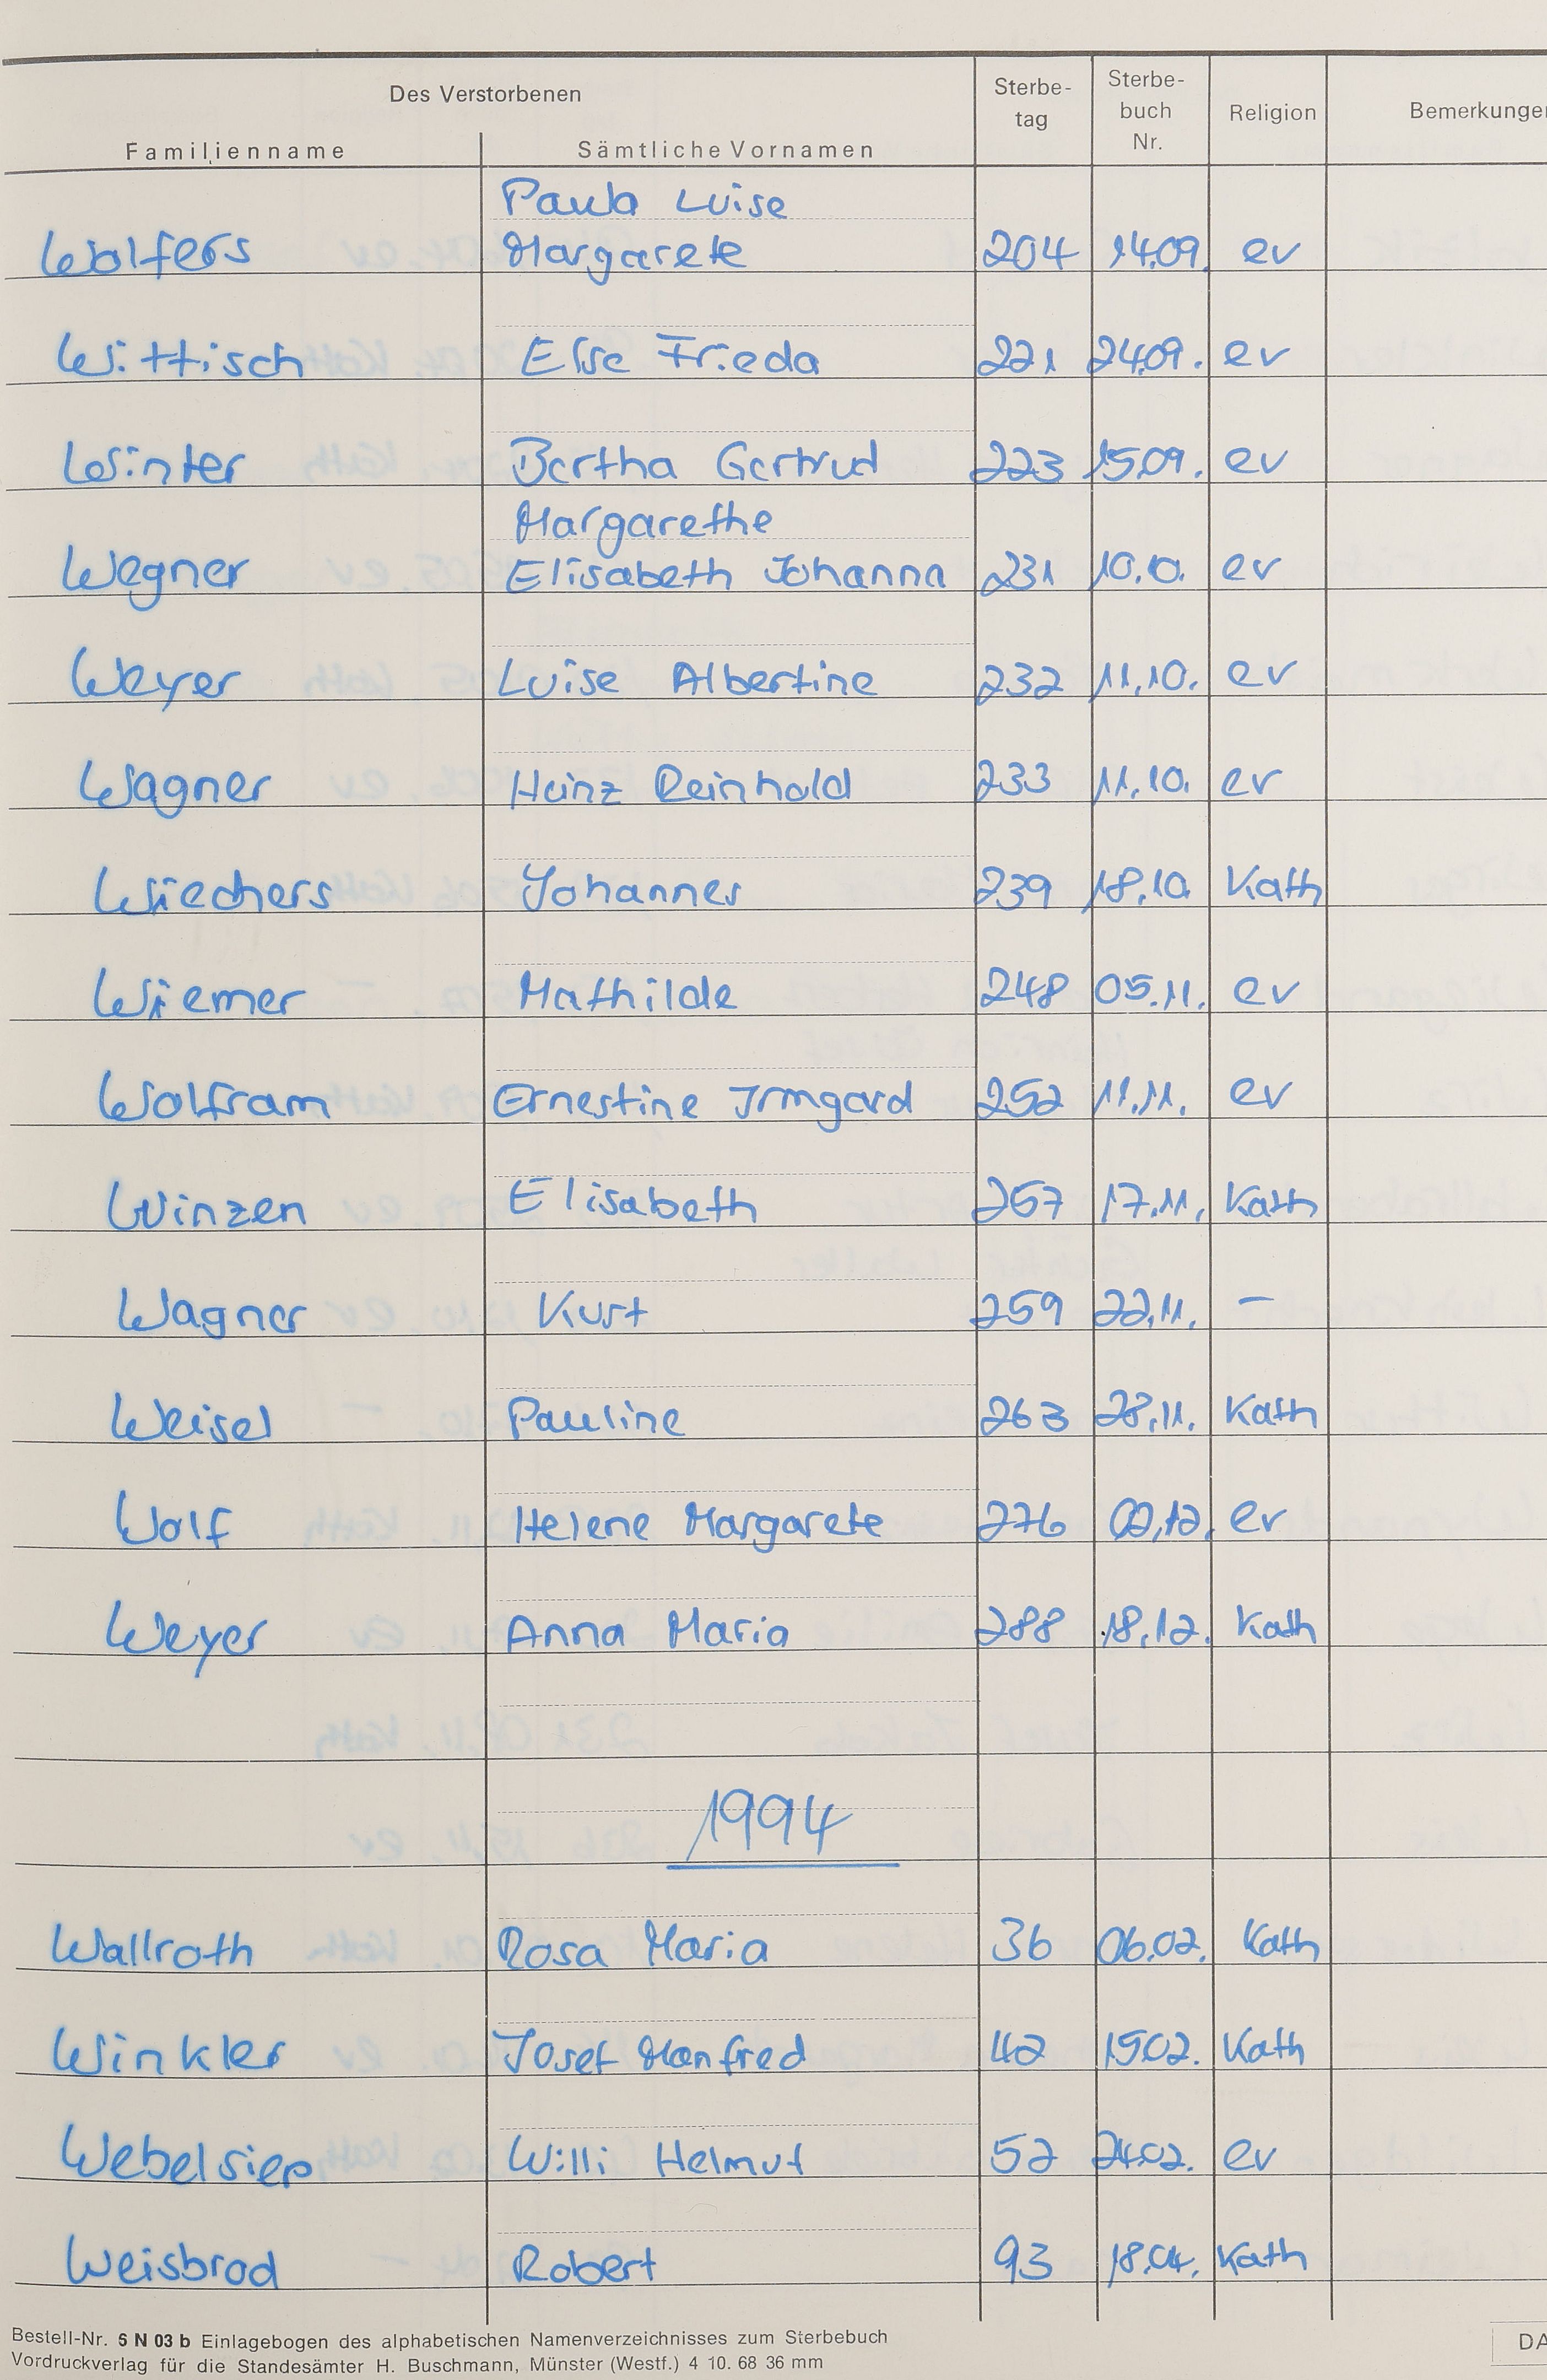 Des Verstorbenen
Familienname Sämtliche Vornamen Sterbe- tag Sterbe- buch Nr. Religion Bemerkungen
Paula Luise
Wolfers Margarete 204 14.09. ev
Wittisch Else Frieda 221 24.09. ev
Winter Bertha Gertrud 223 15.09. ev
Margarethe
Wegner Elisabeth Johanna 231 10.10. ev
Weyer Luise Albertine 232 11.10. ev
Wagner Heinz Reinhold 233 11.10. ev
Wiechers Johannes 239 18.10. Kath
Wiemer Mathilde 248 05.11. ev
Wolfram Ernestine Irmgard 252 11.11. ev
Winzen Elisabeth 257 17.11. Kath
Wagner Kurt 259 22.11. –
Weisel Pauline 263 28.11. Kath
Wolf Helene Margarete 276 02.12. ev
Weyer Anna Maria 288 18.12. Kath
1994
Wallroth Rosa Maria 36 06.02. Kath
Winkler Josef Manfred 42 15.02. Kath
Webelsiep Willi Helmut 52 24.02. ev
Weisbrod Robert 93 18.04. Kath
Bestell-Nr. 5 N 03 b Einlagebogen des alphabetischen Namenverzeichnisses zum Sterbebuch
Vordruckverlag für die Standesämter H. Buschmann, Münster (Westf.) 4 10. 68 36 mm
DA